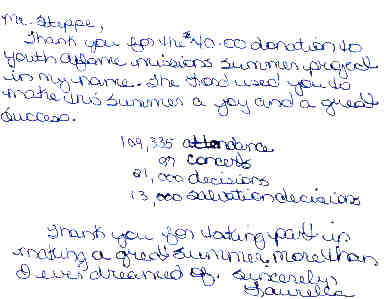 Mr. Steppe,
Thank you for the $40.00 donation to
youth aflame missions summer project
in my name. The Lord used you to
make this summer a joy and a great
success.
109,335 attendance
97 concerts
21,000 decisions
13,000 salvation decisions
Thank you for taking part in
making a great summer more than
I ever dreamed of. Sincerely,
Laurella